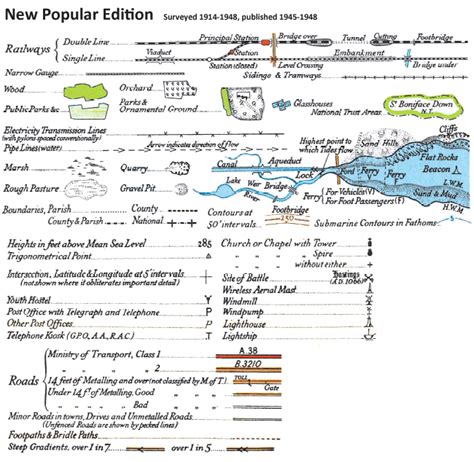 New Popular Edition Surveyed 1914-1948, published 1945-1948
Railways
Double Line
Principal Station
Bridge over
Tunnel
Cutting
Footbridge
Single Line
Viaduct
Station (closed)
Level Crossing
Embankment
Bridge under
Narrow Gauge
Sidings & Tramways
Wood
Orchard
Glasshouses
St Boniface Down
N.T.
National Trust Areas
Public Parks &c
Parks &
Ornamental Ground
Electricity Transmission Lines
(with pylons spaced conventionally)
Pipe Lines (water)
Arrow indicates direction of flow
Highest point to
which Tides flow
Sand Hills
Cliffs
Marsh
Quarry
Canal
Aqueduct
Lock
Ford
Ferry
Ferry
Flat Rocks
Beacon
Rough Pasture
Gravel Pit
Lake
River
War Bridge
Ferry
For Vehicles (V)
For Foot Passengers (F)
L.W.M.
Sand & Mud
H.W.M.
Boundaries, Parish
County
County & Parish
National
Contours at
50' intervals
Footbridge
250
Submarine Contours in Fathoms
5
Heights in feet above Mean Sea Level 285
Trigonometrical Point
Intersection, Latitude & Longitude at 5' intervals
(not shown where it obliterates important detail)
Youth Hostel Y
Post Office with Telegraph and Telephone P
Other Post Offices P
Telephone Kiosk (G.P.O., A.A., R.A.C.) T
Church or Chapel with Tower
" " " Spire
" " without either +
Site of Battle
Hastings
(A.D. 1066)
Wireless Aerial Mast
Windmill
Windpump
Lighthouse
Lightship
Roads
Ministry of Transport, Class 1 A.38
" " " 2 B.3210
14 feet of Metalling and over (not classified by M. of T.)
TOLL
Gate
Under 14 ft of Metalling, Good
" " " Bad
Minor Roads in towns, Drives and Unmetalled Roads
(Unfenced Roads are shown by pecked lines)
Footpaths & Bridle Paths
Steep Gradients, over 1 in 7 over 1 in 5